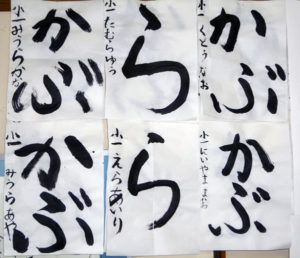 かぶ
小一 みうらかな
ら
小一 たむらゆう
かぶ
小一 くどうなお
かぶ
小一 みうらあや
ら
小一 えらあいり
かぶ
小一 にいやま